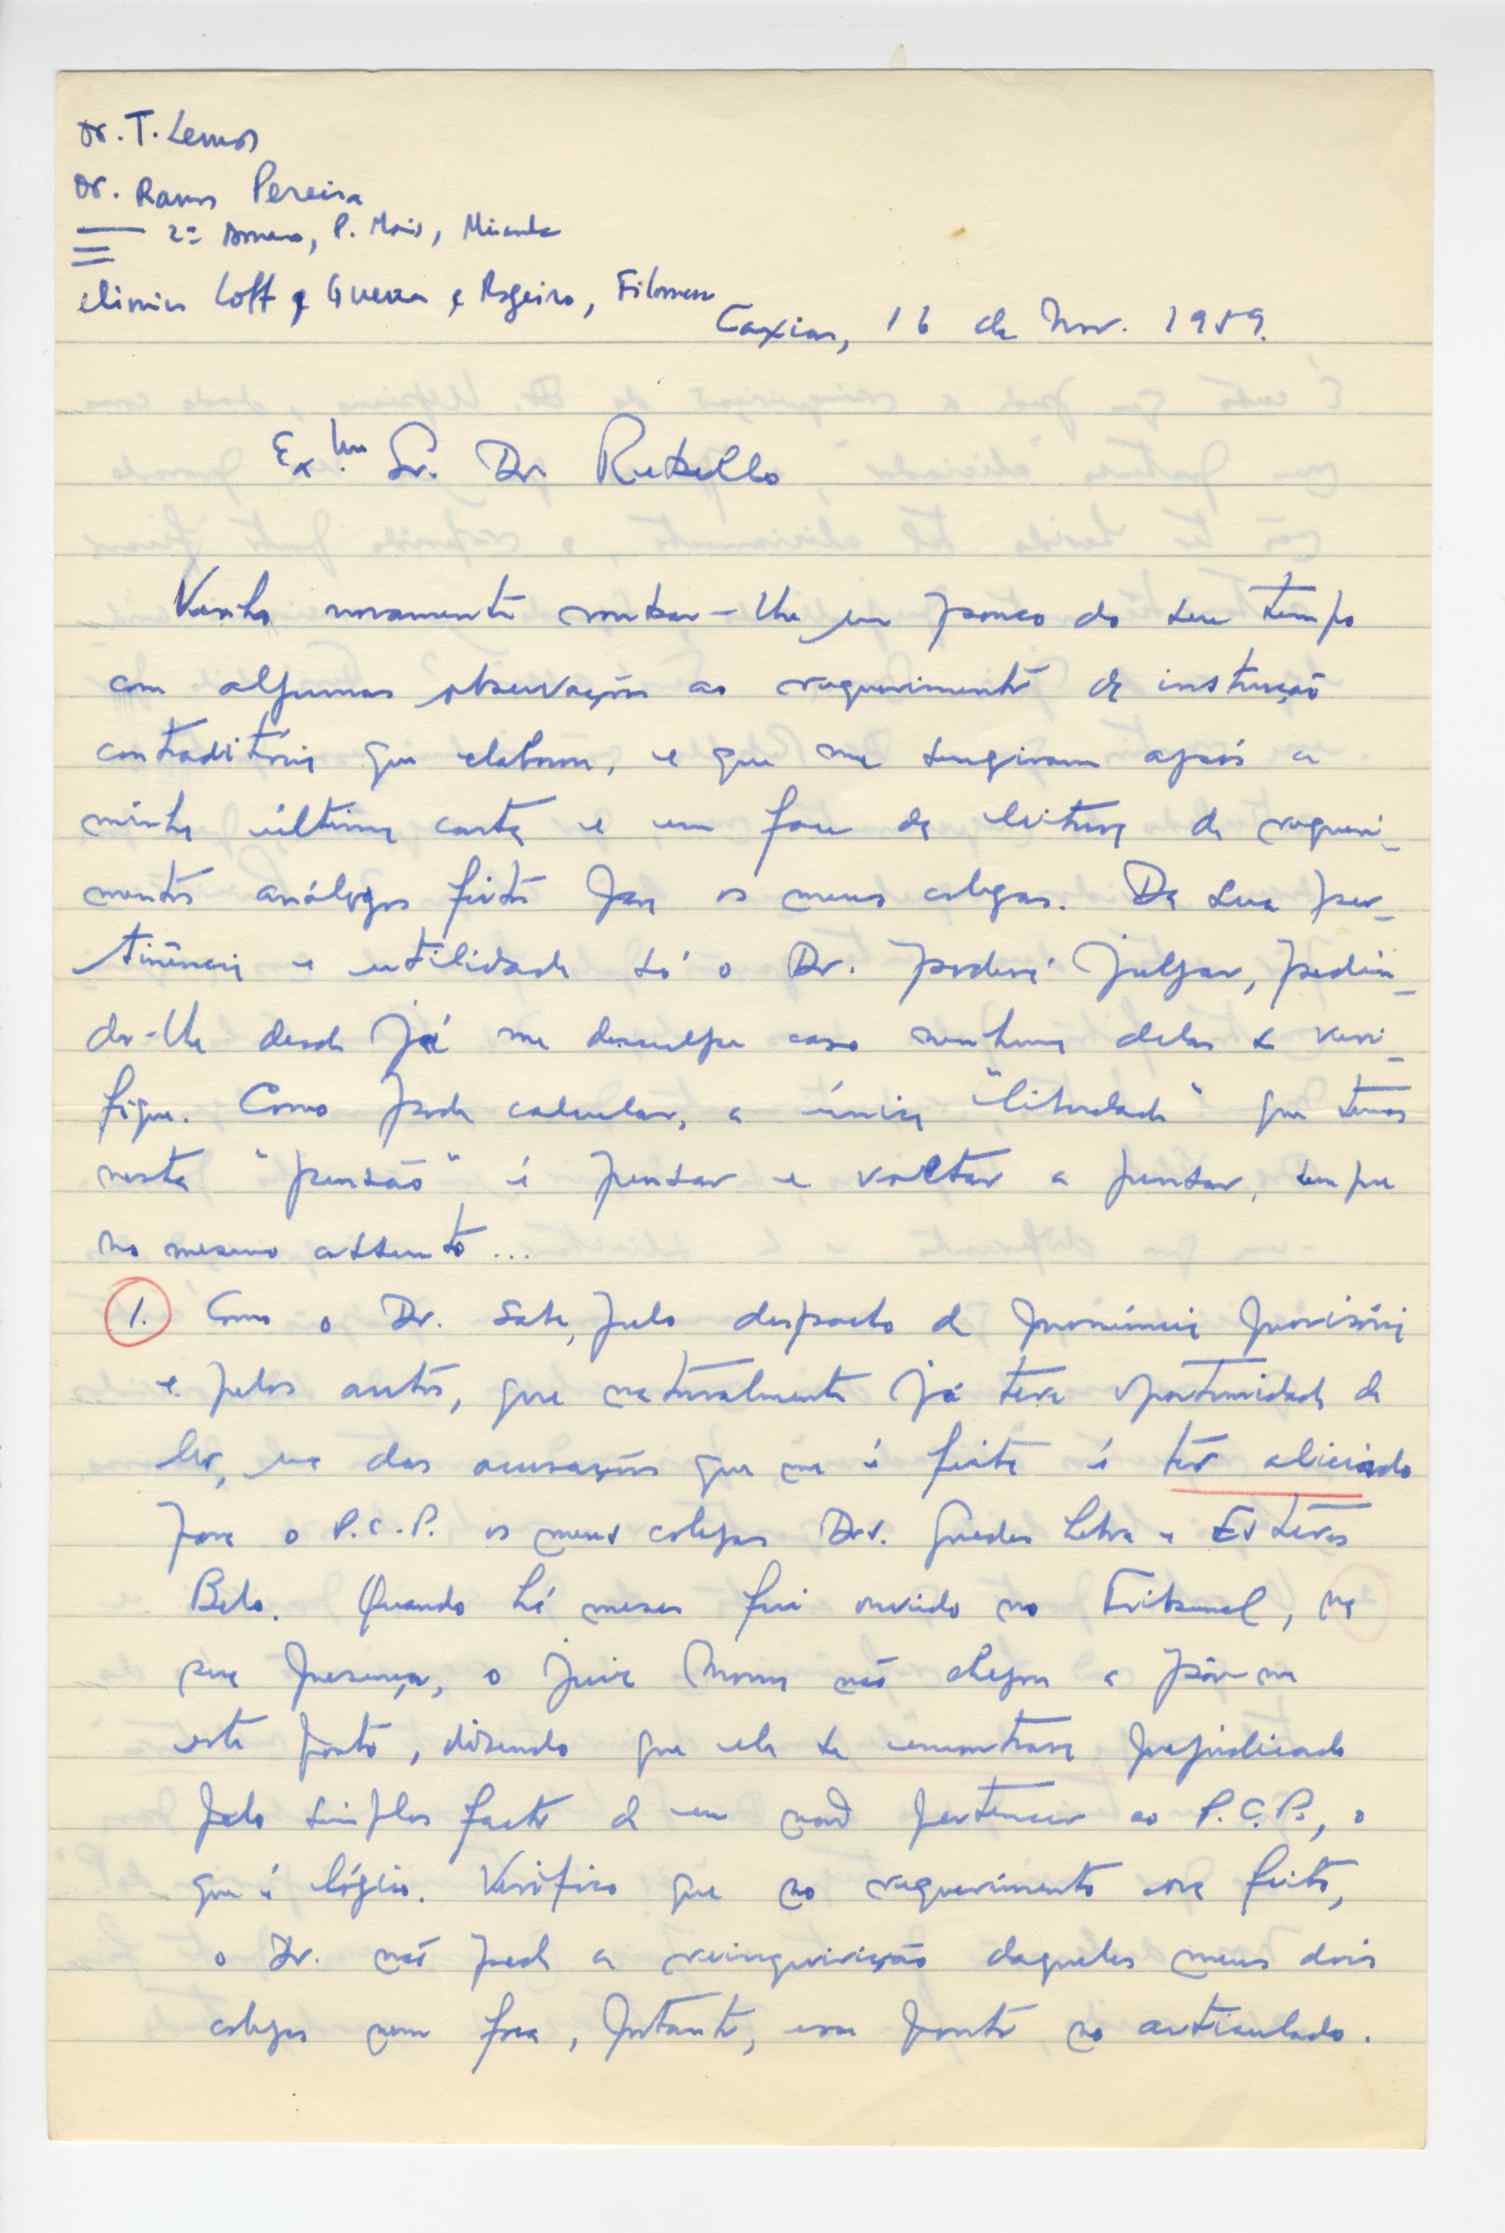 Dr. T. Lemos
Dr. Ramos Pereira
2º P. Mais, Miranda
elimina Loff e Guerra e Rogeiro, Filomeno
Caxias, 16 de Nov. 1959.
Ex.mo Sr. Dr. Rebello
Venho novamente roubar-lhe um pouco do seu tempo
com algumas observações ao requerimento de instrução
contraditória que elaborou, e que me surgiram após a
minha última carta e em face da leitura de requeri-
mentos análogos feitos para os meus colegas. Da sua per-
tinência e utilidade só o Dr. poderá julgar, pedin-
do-lhe desde já me desculpe caso nenhuma delas se veri-
fique. Como pode calcular, a única "liberdade" que temos
nesta "pensão" é pensar e voltar a pensar, sempre
no mesmo assunto...
1. Como o Dr. sabe, pelo despacho de pronúncia provisória
e pelos autos, que naturalmente já teve oportunidade de
ler, uma das acusações que me é feita é ter aliciado
para o P.C.P. os meus colegas Drs. Guedes Lebre e Esteves
Belo. Quando há meses fui ouvido no Tribunal, na
sua presença, o juiz não chegou a pôr-me
este ponto, dizendo que ele se encontrava prejudicado
pelo simples facto de eu não pertencer ao P.C.P., o
que é lógico. Verifico que no requerimento ora feito,
o Dr. não pede a reinquirição daqueles meus dois
colegas nem foca, portanto, esse ponto no articulado.